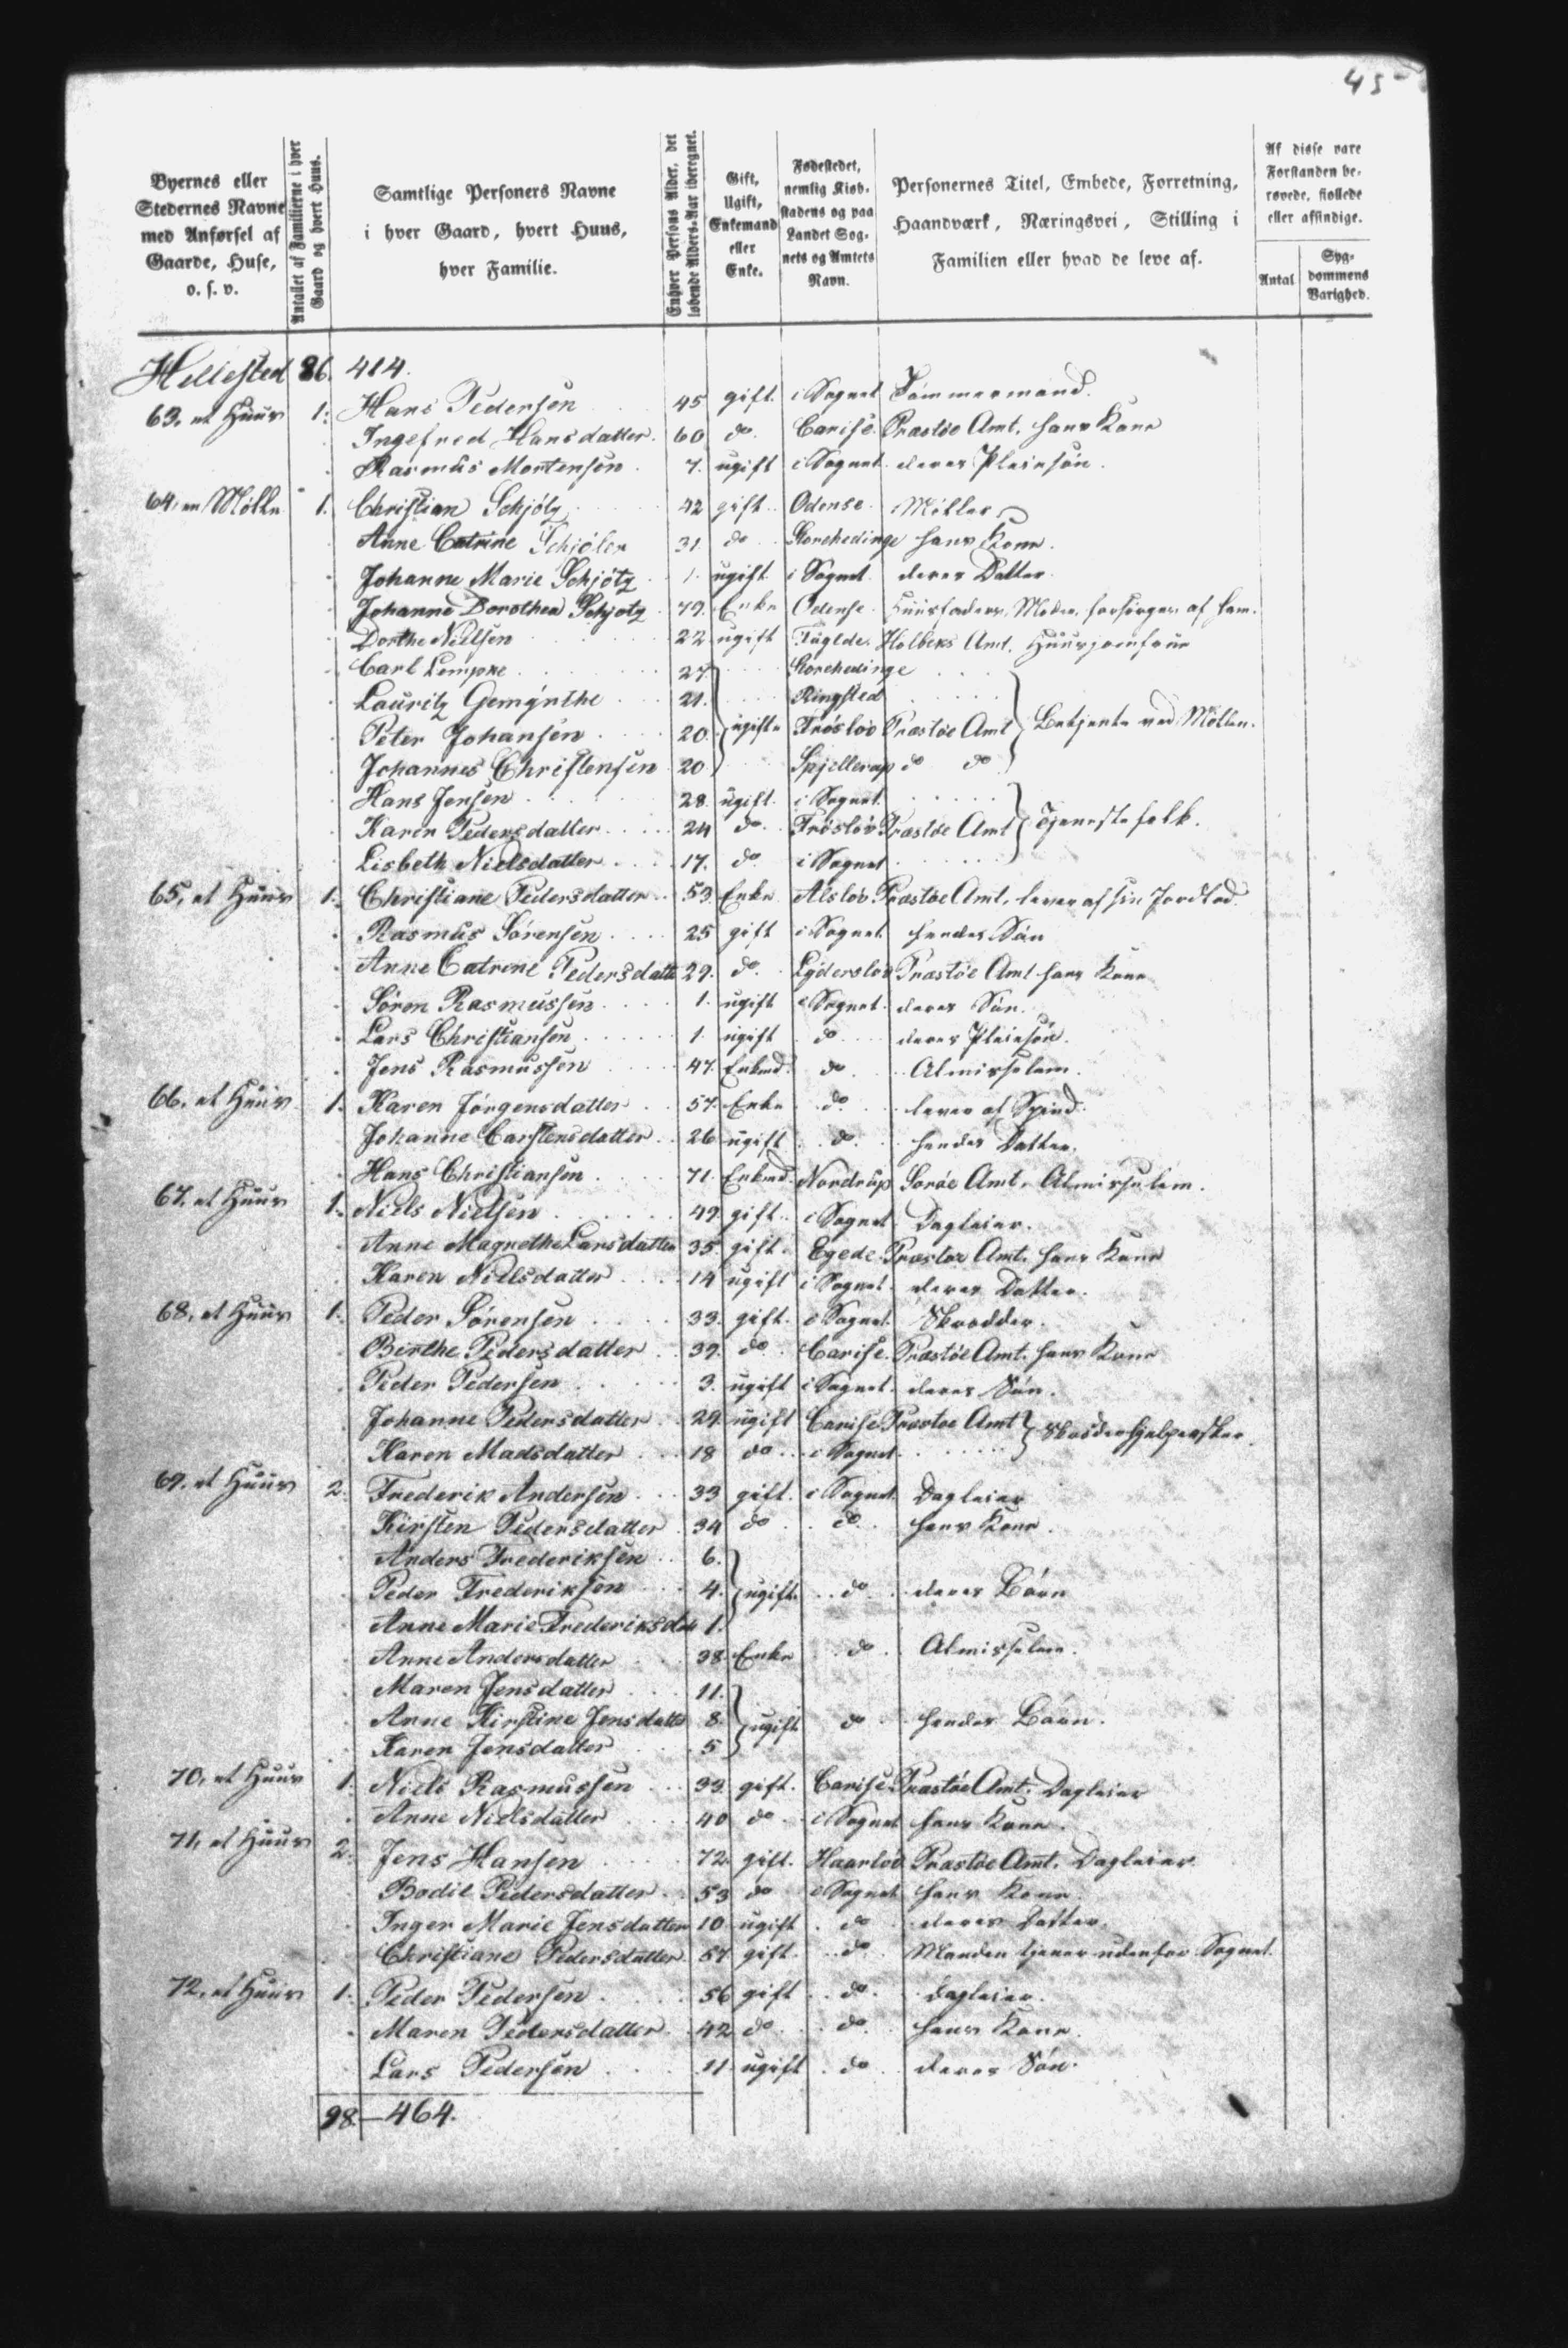 45
Byernes eller Stedernes Navne med Anførsel af Gaarde, Huse, o. s. v.
Antallet af Familierne i hver Gaard og hvert Huus.
Samtlige Personers Navne i hver Gaard, hvert Huus, hver Familie.
Enhver Persons Alder, det løbende Alders-Aar iberegnet.
Gift, Ugift, Enkemand eller Enke.
Fødestedet, nemlig Kiøbstadens og paa Landet Sognets og Amtets Navn.
Personernes Titel, Embede, Forretning, Haandværk, Næringsvei, Stilling i Familien eller hvad de leve af.
Af disse vare Forstanden berøvede, fiollede eller afsindige.
Antal
Sygdommens Varighed.
Hellested 86. 414.
63, et Huus 1. Hans Pedersen 45 gift. i Sognet Tømmermand.
Ingefred Hansdatter. 60 do. Carise Præstøe Amt. hans Kone
Rasmus Mortensen. 7. ugift i Sognet. deres Pleiesøn.
64, en Mølle 1. Christian Schjøtz 42 gift Odense. Møller
Anne Catrine Schjøler 31. do Storehedinge hans Kone.
Johanne Marie Schjøtz 1. ugift i Sognet. deres Datter.
Johanne Dorothea Schjøtz 79. Enke Odense. Huusfaders Moder, forsørges af ham.
Dorthe Nielsen 22 ugift Tuglde. Holbeks Amt. Huusjomfrue
Carl Lempke 27. Storehedinge
Lauritz Gemynthe 21. Ringsted
Peter Johansen 20. ugifte Frøslov Præstøe Amt Betjente ved Møllen.
Johannes Christensen 20 Spjellerup do do
Hans Jensen 28. ugift. i Sognet.
Karen Pedersdatter 24 do. Frøslov Præstøe Amt Tjenestefolk.
Lisbeth Nielsdatter 17. do i Sognet
65, et Huus 1. Christiane Pedersdatter 53. Enke Alslov Præstøe Amt. lever af sin Jordlod.
Rasmus Sørensen 25 gift i Sognet hendes Søn
Anne Catrine Pedersdatte 29. do. Lyderslov Præstøe Amt hans Kone
Søren Rasmussen 1. ugift i Sognet. deres Søn.
Lars Christiansen 1. ugift do deres Pleiesøn.
Jens Rasmussen 47. Enkmd. do Almisselem.
66, et Huus 1. Karen Jørgensdatter 57. Enke do. lever af Spind.
Johanne Carstensdatter 26 ugift do. hendes Datter.
Hans Christiansen 71. Enkmd. Nordrup Sorøe Amt, Almisselem.
67, et Huus 1. Niels Nielsen 49. gift i Sognet Dagleier.
Anne Magnethe Larsdatter 35. gift. Egede Præstøe Amt. hans Kone
Karen Nielsdatter 14 ugift i Sognet. deres Datter.
68, et Huus 1. Peder Sørensen 33. gift. i Sognet Skrædder.
Birthe Pedersdatter 39. do. Carise. Præstøe Amt. hans Kone
Peder Pedersen 3. ugift i Sognet. deres Søn.
Johanne Pedersdatter 29. ugift Carise Præstøe Amt
Karen Madsdatter 18 do i Sognet
69, et Huus 2. Frederik Andersen 33 gift. i Sognet Dagleier
Kirsten Pedersdatter 34 do do hans Kone.
Anders Frederiksen 6.
Peder Frederiksen 4. ugift. do deres Børn
Anne Marie Frederiksdtr 1.
Anne Andersdatter 38 Enke do. Almisselem.
Maren Jensdatter 11.
Anne Kirstine Jensdatter 8. ugift do hendes Børn.
Karen Jensdatter 5
70, et Huus 1. Niels Rasmussen 33. gift. Carise Præstøe Amt. Dagleier
Anne Nielsdatter 40 do i Sognet hans Kone.
71, et Huus 2. Jens Hansen 72. gift. Haarlod Præstøe Amt. Dagleier
Bodil Pedersdatter 53 do i Sognet hans Kone.
Inger Marie Jensdatter 10 ugift do deres Datter.
Christiane Pedersdatter 57. gift do Manden tjener udenfor Sognet.
72, et Huus 1. Peder Pedersen 56 gift do. Dagleier.
Maren Pedersdatter 42 do do. hans Kone.
Lars Pedersen 11 ugift do deres Søn.
98.—464.